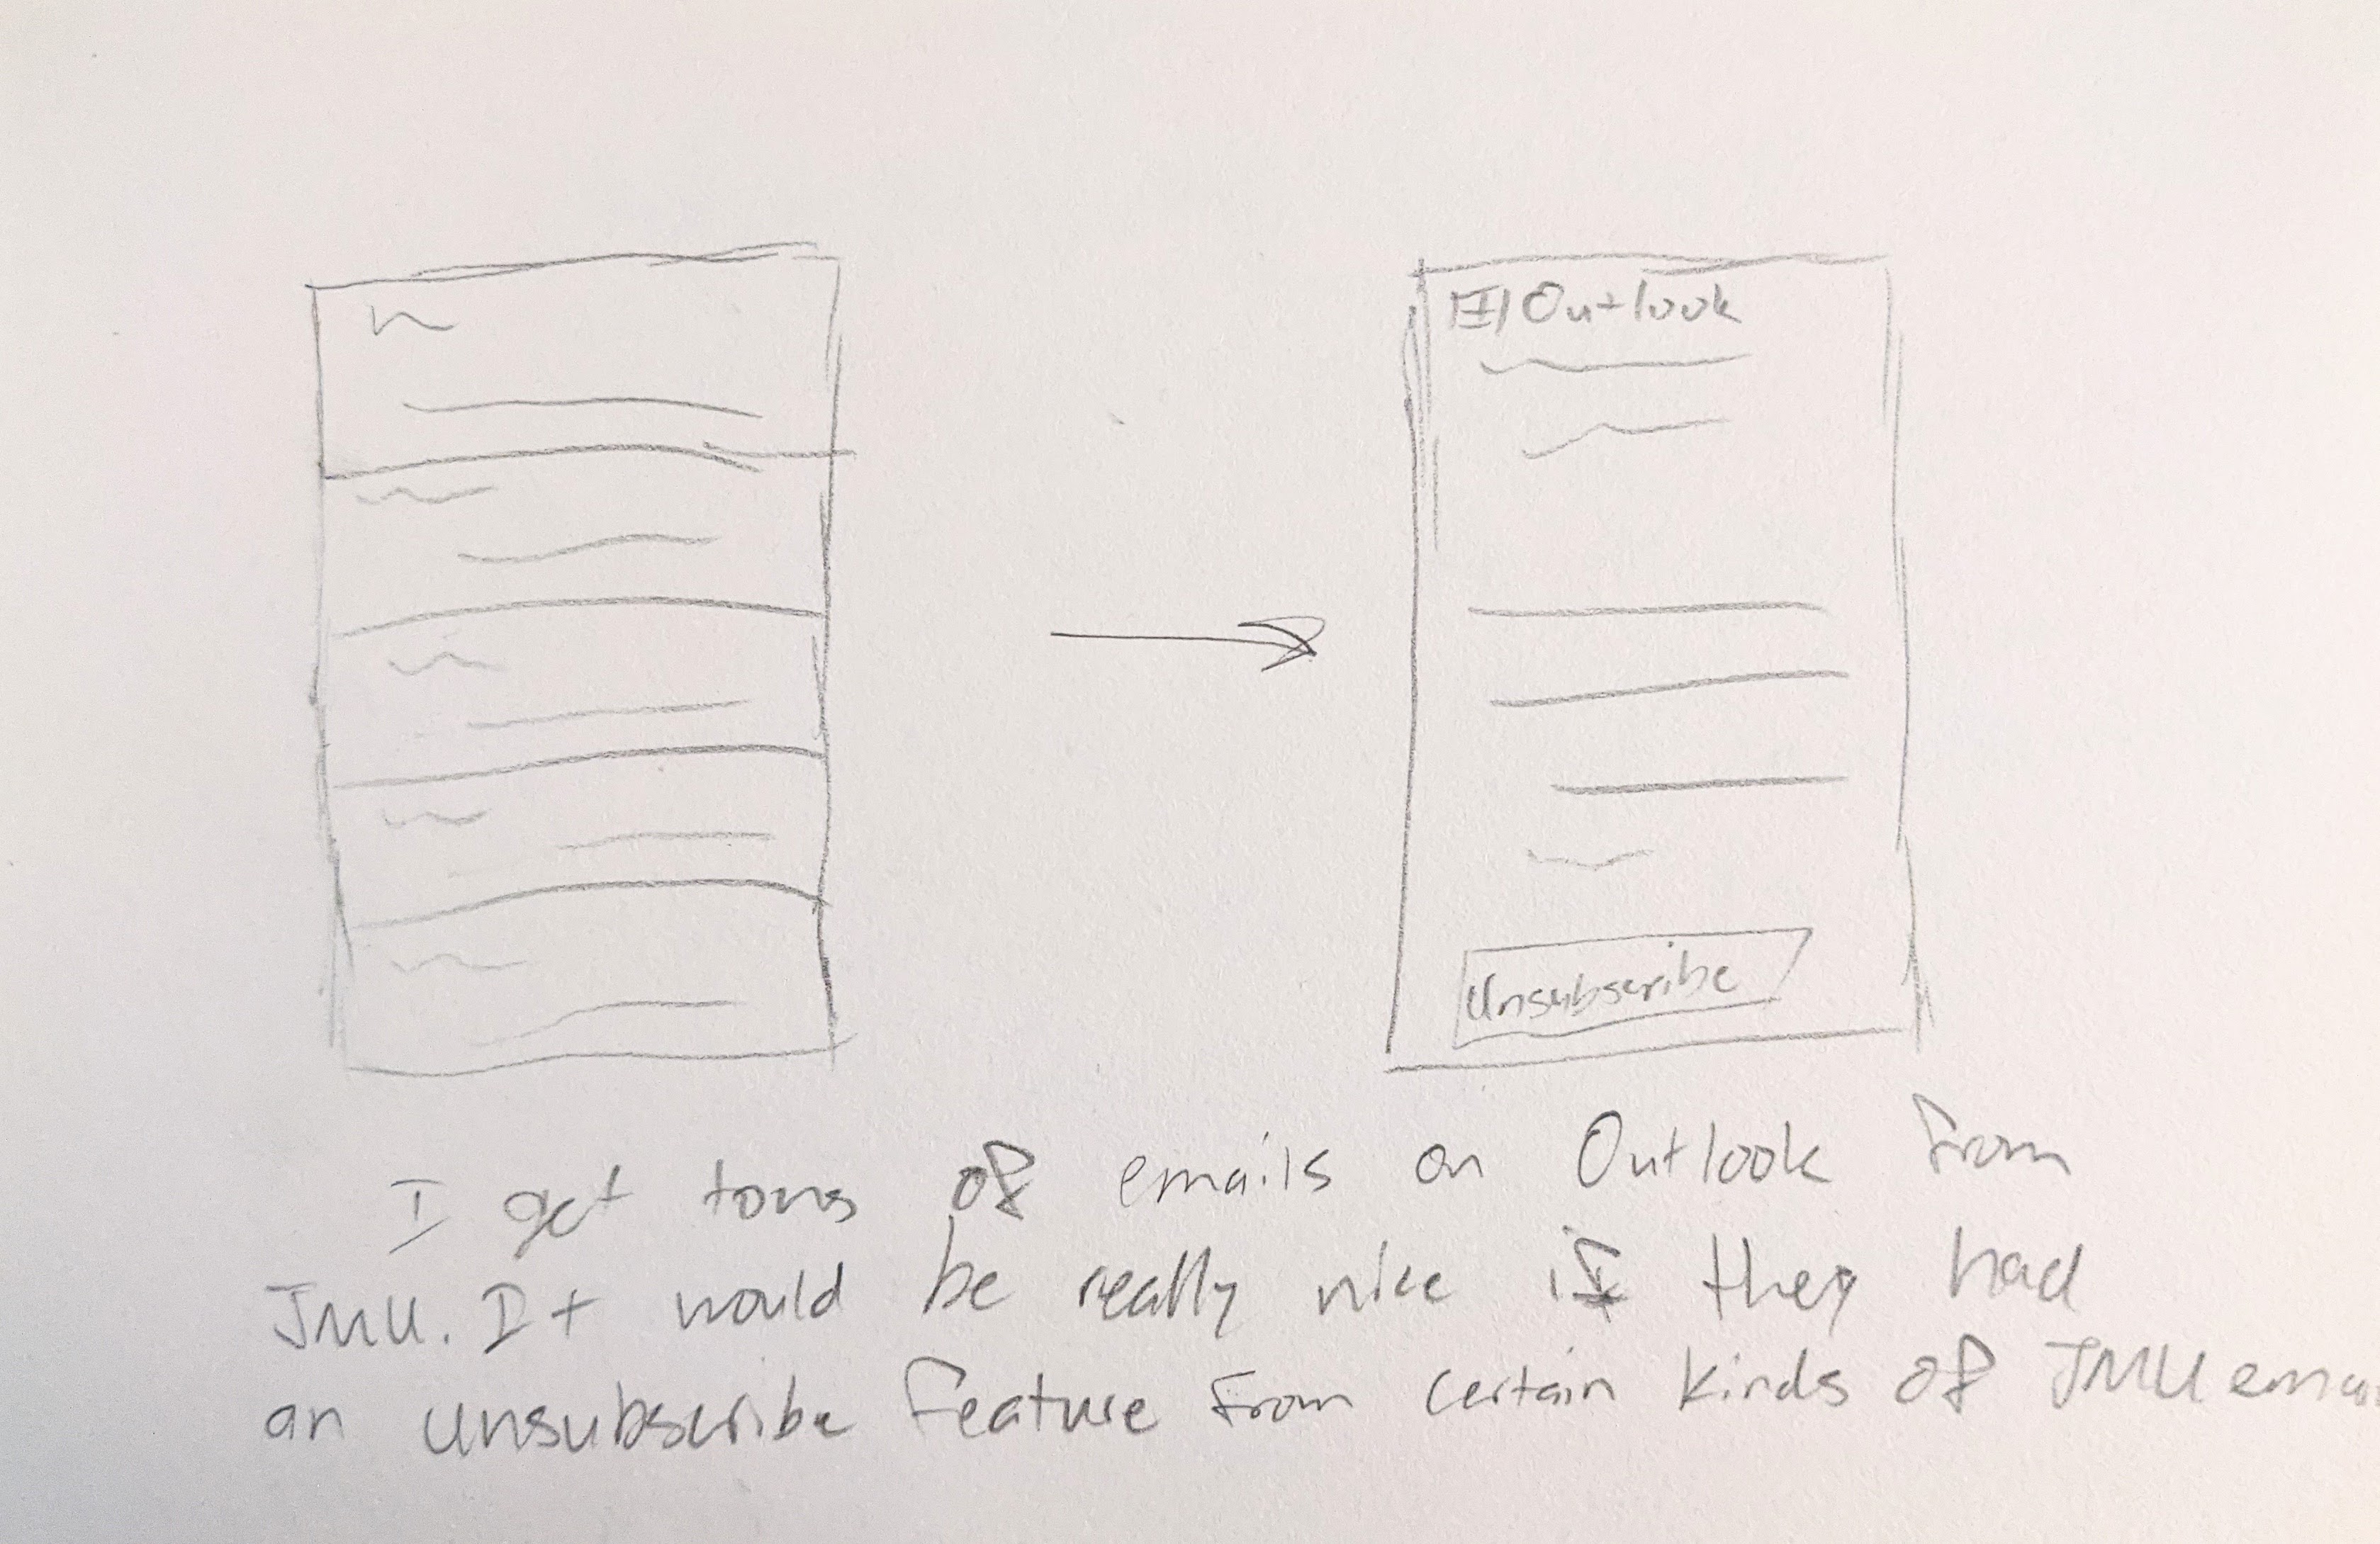 Outlook
Unsubscribe
I get tons of emails on Outlook from
JMU. It would be really nice if they had
an unsubscribe feature from certain kinds of JMU emai